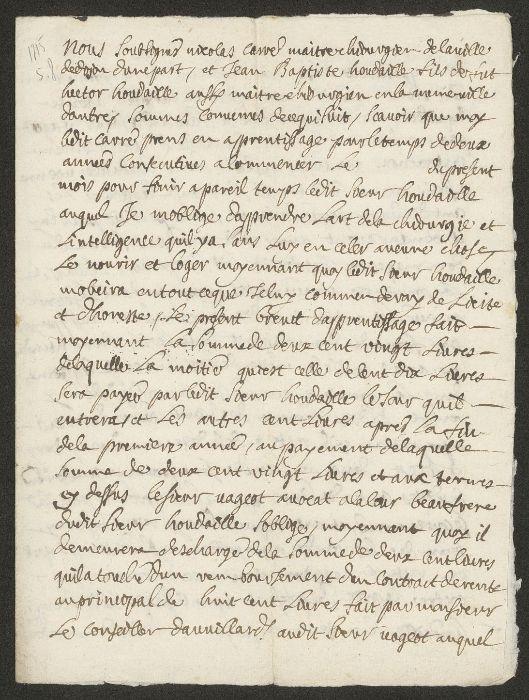 1715
Nous soubsignés nicolas carré maitre chirurgien de la ville
de dijon d'une part, et Jean Baptiste houdaille fils de fut
hector houdaille aussy maitre chirurgien en la meme ville
d'autre, sommes convenus de ce qui suit, scavoir que moy
ledit carré prens en apprentissage pour le temps de deux
années consecutives a commencer le du present
mois pour finir a pareil temps ledit sieur houdaille
auquel Je m'oblige d'apprendre l'art de la chirurgie et
l'intelligence qu'il y a, sans luy en celer aucune chose,
le nourir et loger moyennant quoy ledit sieur houdaille
m'obeira en tout ce que Je luy commenderay de licite
et d'honeste, le present brevet d'apprentissage fait
moyennant la somme de deux cent vingt livres
de laquelle la moitié qui est celle de cent dix livres
sera payée par ledit sieur houdaille le Jour qu'il
entrera, et les autres cent livres apres la fin
de la premiere année, au payement de laquelle
somme de deux cent vingt livres et aux termes
cy dessus le sieur vageot avocat a la cour beaufrere
dudit sieur houdaille s'oblige, moyennant quoy il
demeurera descharge de la somme de deux cent livres
qu'il a touché d'un remboursement d'un contract de rente
au principal de huit cent livres fait par monsieur
le conseiller dauvillard audit sieur vageot auquel